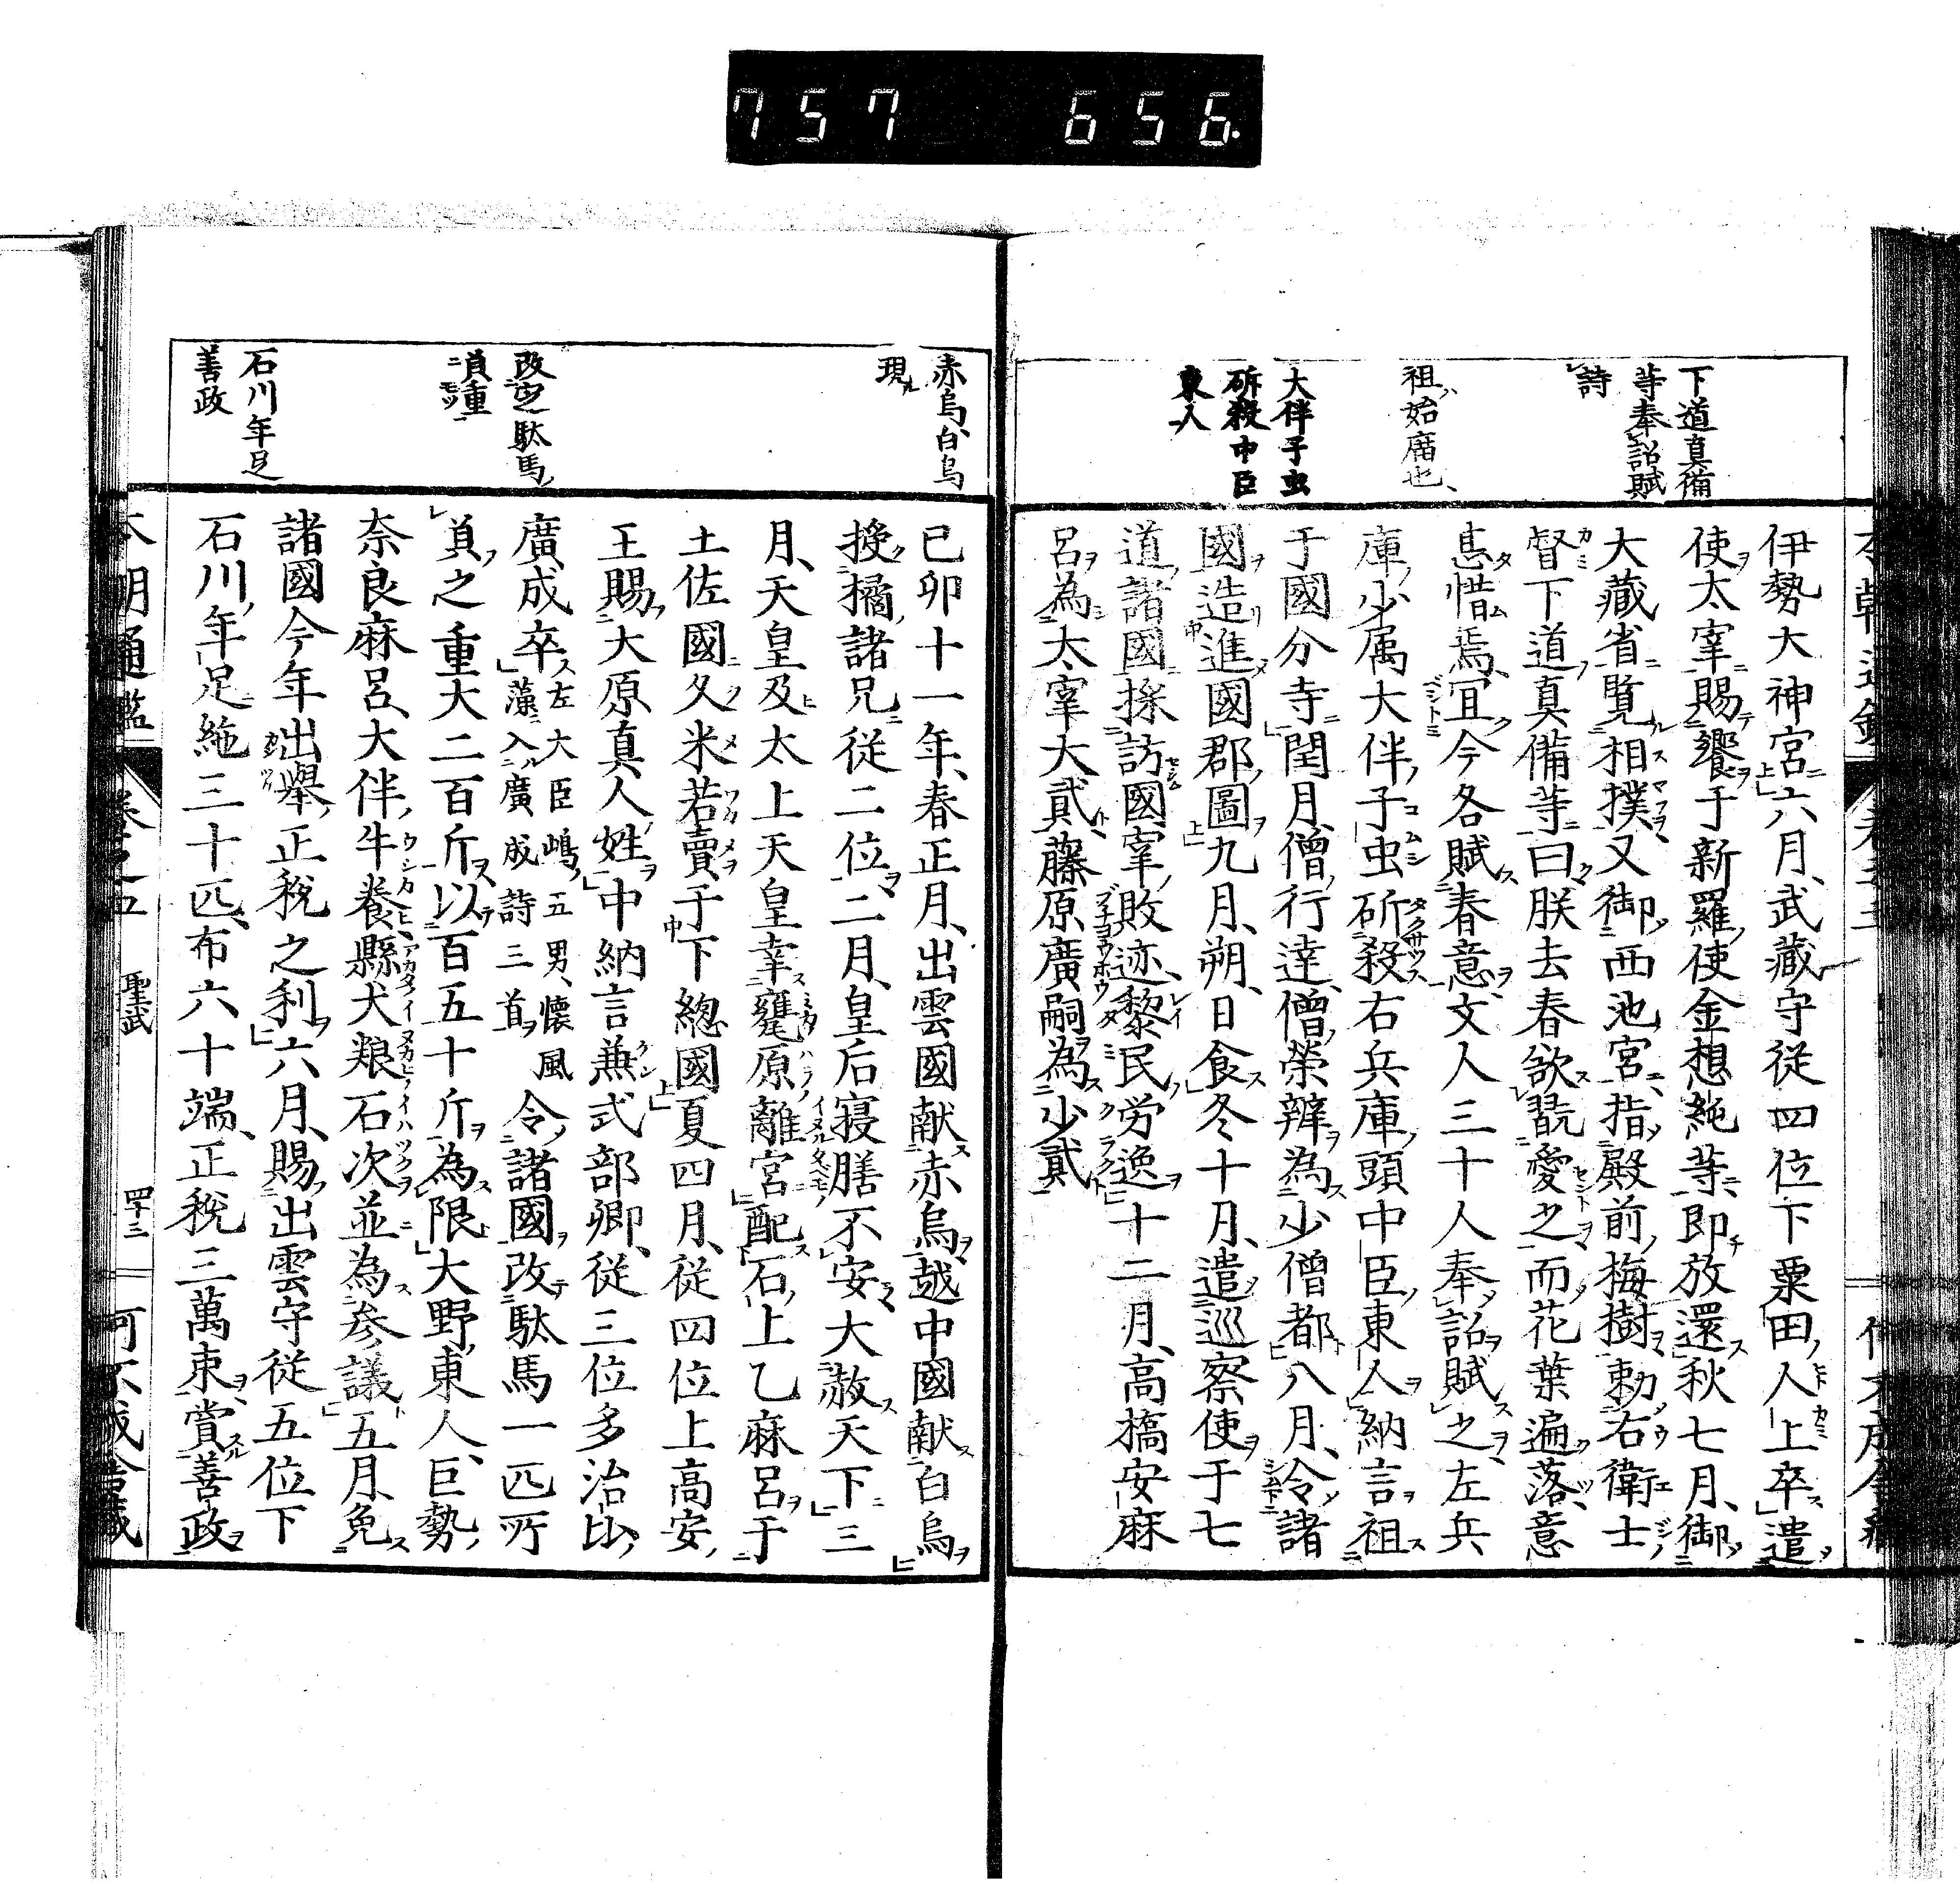 757 656.
下道真備
等奉詔賦
詩
祖始席也
大伴子虫
斫殺中臣
東人
伊勢大神宮六月武藏守從四位下粟田人上卒遣
使太宰賜饗于新羅使金想純等即放還秋七月御
大藏省覽相撲又御西池宮指殿前梅樹勅右衛士
督下道真備等曰朕去春欲翫愛之而花葉遍落意
惜焉宜今各賦春意文人三十人奉詔賦之左兵
庫少属大伴子虫斫殺右兵庫頭中臣東人納言祖
于國分寺閏月僧行達僧榮辨為少僧都八月令諸
國造進國郡圖九月朔日食冬十月遣巡察使于七
道諸國採訪國宰敗迹黎民労逸十二月高橋安麻
呂為太宰大貳藤原廣嗣為少貳
赤烏白烏
現
改定駄馬
負重
石川年足
善政
己卯十一年春正月出雲國献赤烏越中國献白烏
授橘諸兄従二位二月皇后寝膳不安大赦天下三
月天皇及太上天皇幸甕原離宮配石上乙麻呂于
土佐國久米若賣于下總國夏四月従四位上高安
王賜大原真人姓中納言兼式部卿従三位多治比
廣成卒左大臣嶋五男懐風藻入廣成詩三首令諸國改駄馬一匹所
負之重大二百斤以百五十斤為限大野東人巨勢
奈良麻呂大伴牛養縣犬粮石次並為参議五月免
諸國今年出舉正税之利六月賜出雲守従五位下
石川年足絁三十匹布六十端正税三萬束賞善政
本朝通鑑 卷之五 聖武 四十二